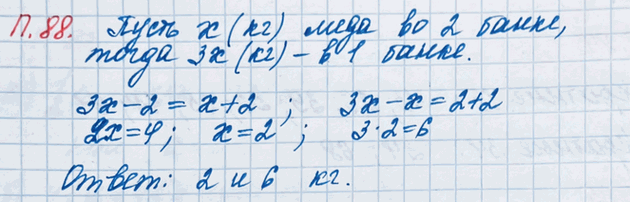 П.88. Пусть x (кг) меда во 2 банке,
тогда 3x (кг) – в 1 банке.
3x – 2 = x + 2 ; 3x – x = 2 + 2
2x = 4 ; x = 2 ; 3 · 2 = 6
Ответ: 2 и 6 кг.